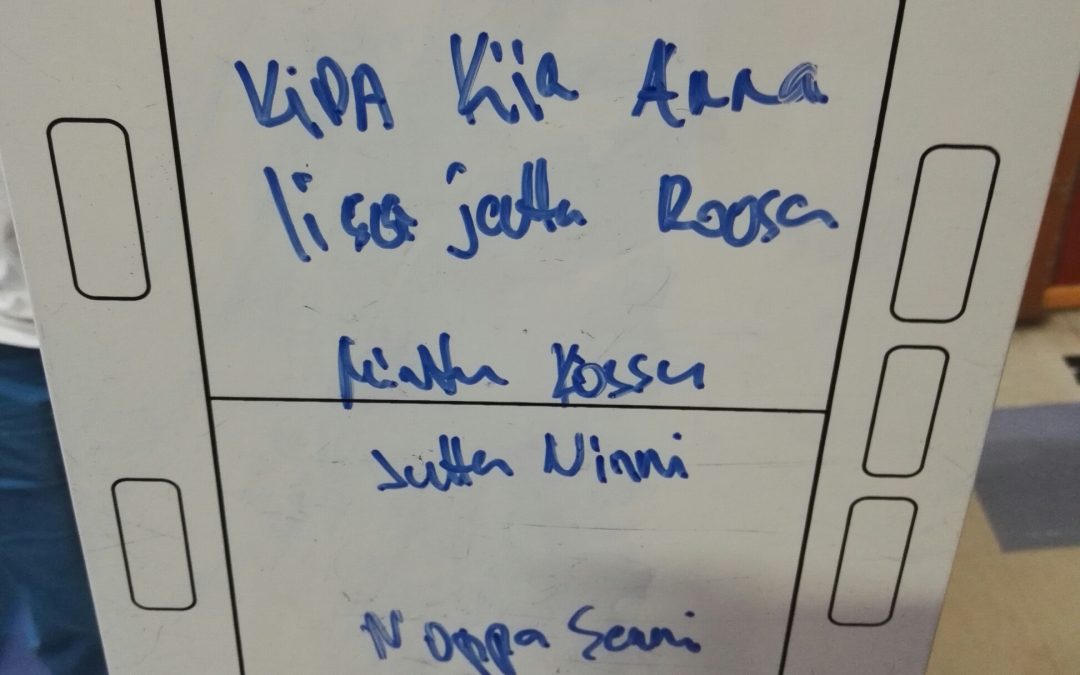 KiDA Kiia Anna
Iisa jatta Roosa
Minttu Kossu
Jutta Ninni
Noppa Senni